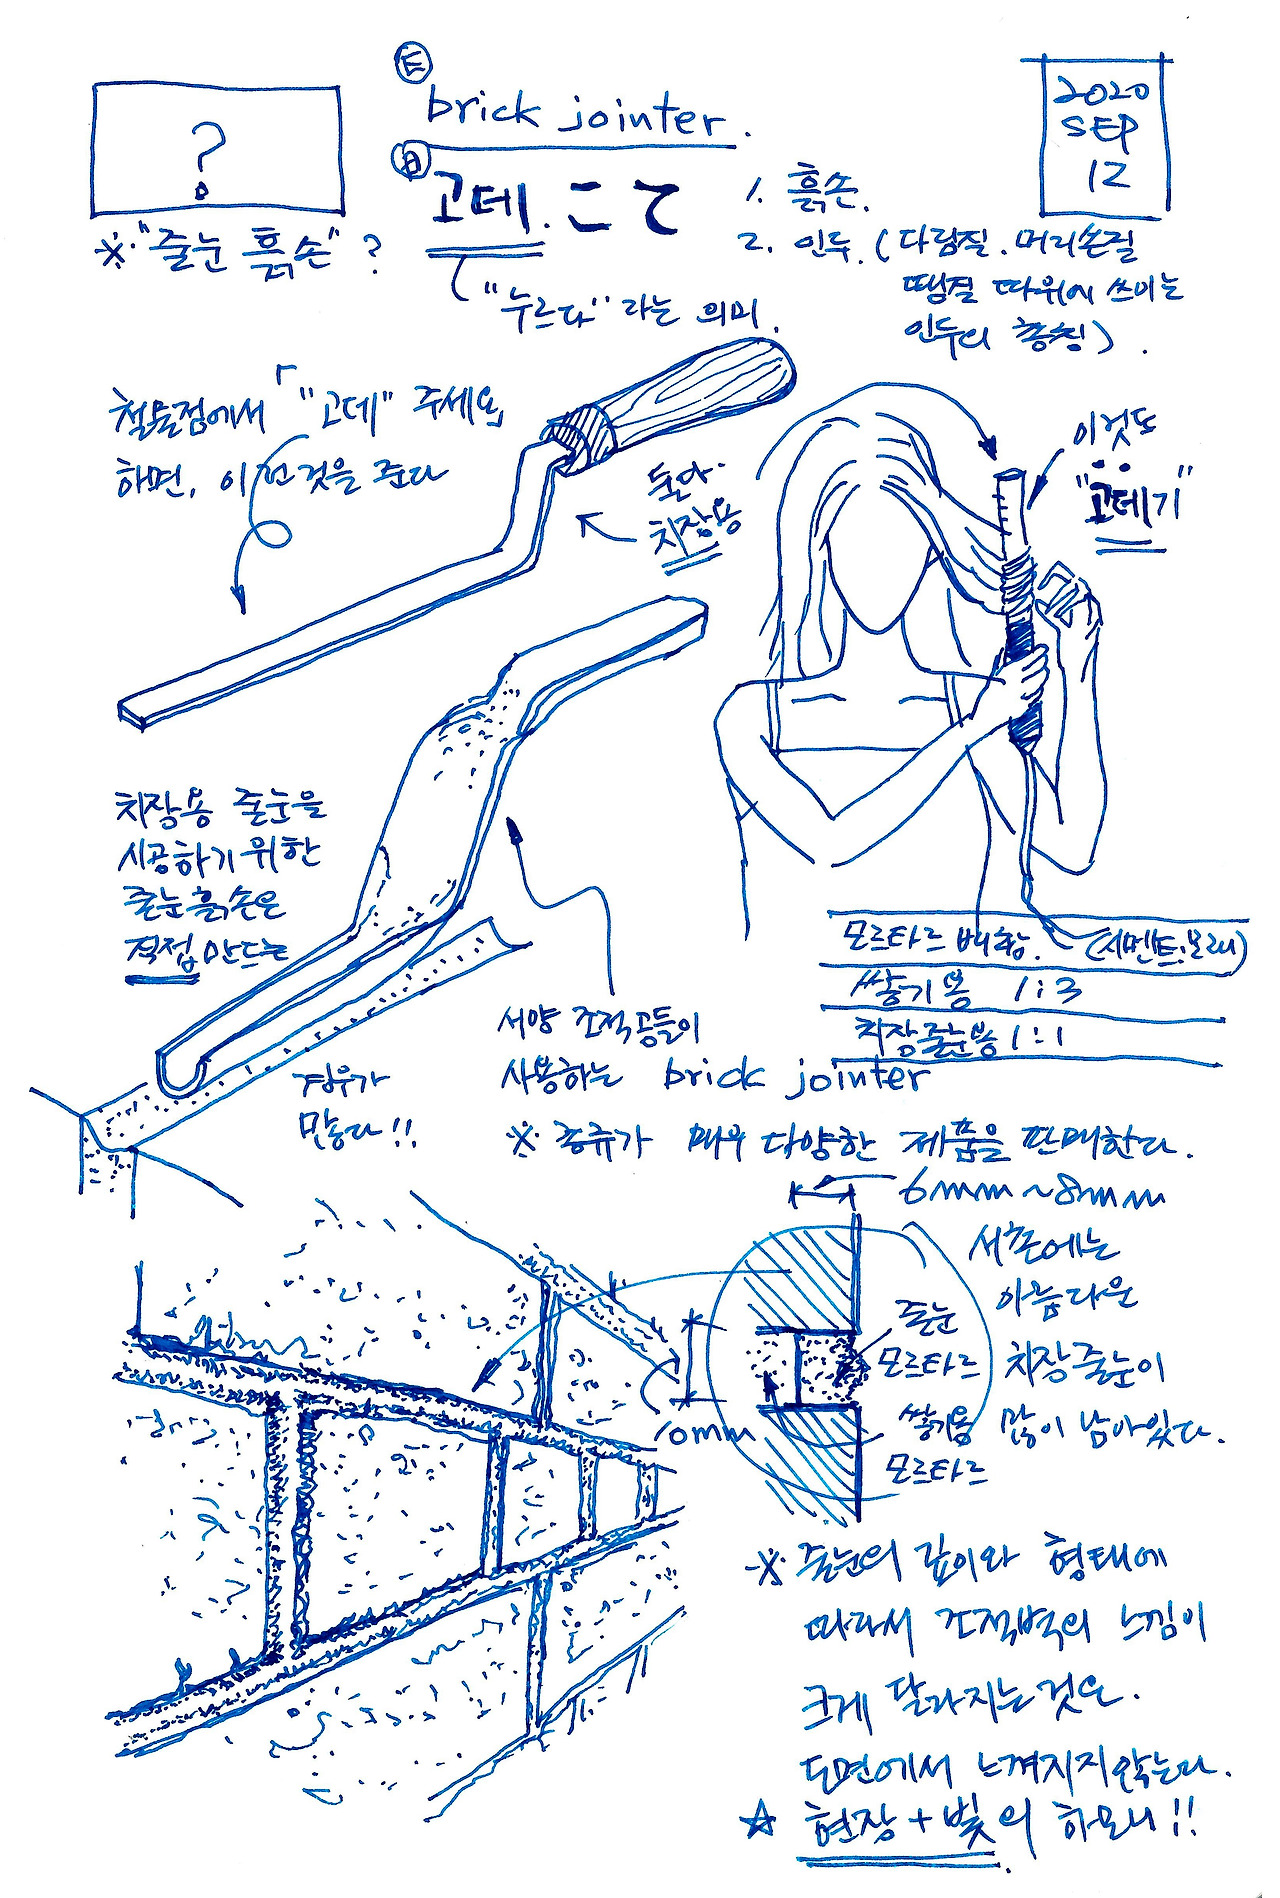 ?
※ "줄눈 흙손" ?
E
brick jointer.
日
고데. こて
"누르다" 라는 의미.
1. 흙손.
2. 인두. (다림질. 머리손질
땜질 따위에 쓰이는
인두의 총칭).
2020
SEP
12
철물점에서 「"고데" 주세요」
하면, 이런 것을 준다
치장용
이것도
"고데기"
치장용 줄눈을
시공하기 위한
줄눈흙손은
직접 만드는
경우가
많다!!
서양 조적공들이
사용하는 brick jointer
※ 종류가 매우 다양한 제품을 판매한다.
모르타르 배합. (시멘트:모래)
쌓기용 1:3
치장줄눈용 1:1
6mm~8mm
10mm
줄눈
모르타르
쌓기용
모르타르
서촌에는
아름다운
치장줄눈이
많이 남아있다.
※ 줄눈의 깊이와 형태에
따라서 조적벽의 느낌이
크게 달라지는 것은.
도면에서 느껴지지 않는다.
☆ 현장 + 빛의 하모니!!